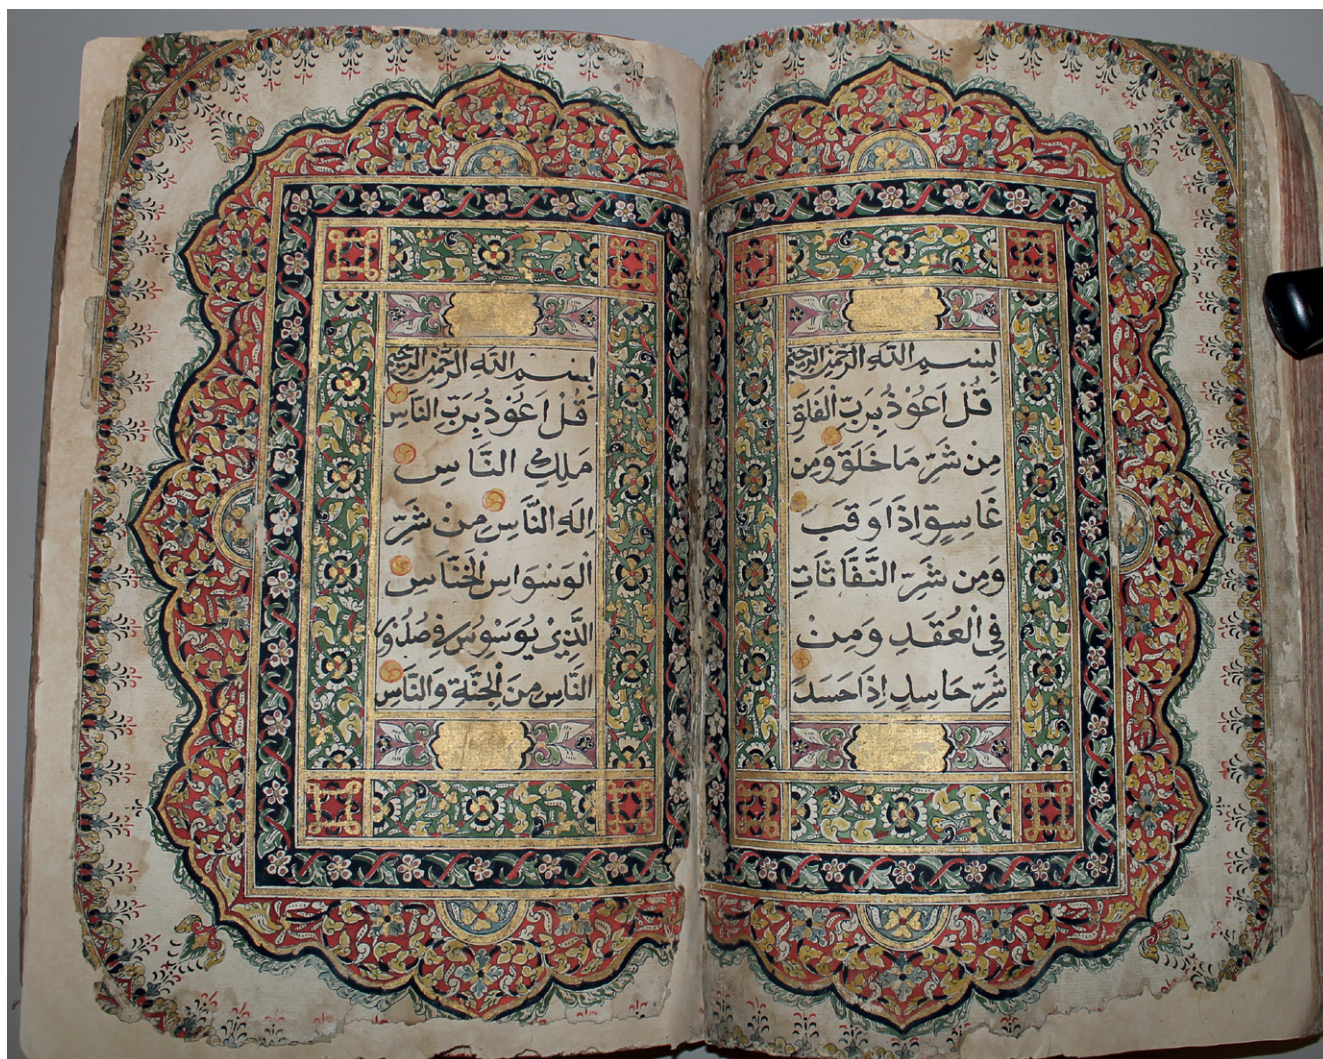 بِسْمِ اللّٰهِ الرَّحْمٰنِ الرَّحِيْمِ
قُلْ اَعُوْذُ بِرَبِّ الْفَلَقِ
مِن شَرِّ مَا خَلَقَ وَمِن
غَاسِقٍ اِذَا وَقَبَ
وَمِن شَرِّ النَّفَّاثَاتِ
فِي الْعُقَدِ وَمِنْ
شَرِّ حَاسِدٍ اِذَا حَسَدَ
بِسْمِ اللّٰهِ الرَّحْمٰنِ الرَّحِيْمِ
قُلْ اَعُوْذُ بِرَبِّ النَّاسِ
مَلِكِ النَّاسِ
اِلٰهِ النَّاسِ مِنْ شَرِّ
الْوَسْوَاسِ الْخَنَّاسِ
الَّذِيْ يُوَسْوِسُ فِي صُدُوْرِ
النَّاسِ مِنَ الْجِنَّةِ وَالنَّاسِ